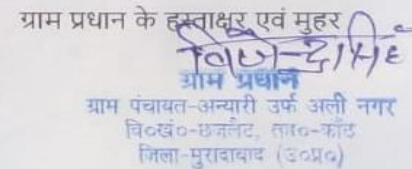 ग्राम प्रधान के हस्ताक्षर एवं मुहर
विजेन्द्र सिंह
ग्राम प्रधान
ग्राम पंचायत-अन्यारी उर्फ अली नगर
वि०खं०-छजलैट, ता०-काँठ
जिला-मुरादाबाद (उ०प्र०)